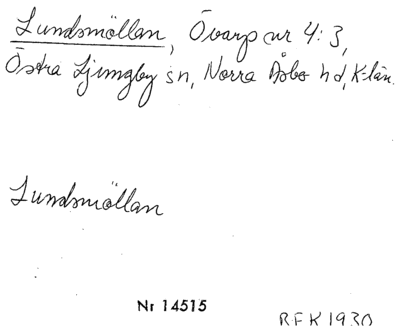 Lundsmöllan, Övarp nr 4:3,
Östra Ljungby sn, Norra Åsbo hd, K-län.
Lundsmöllan
Nr 14515
RFK 1930